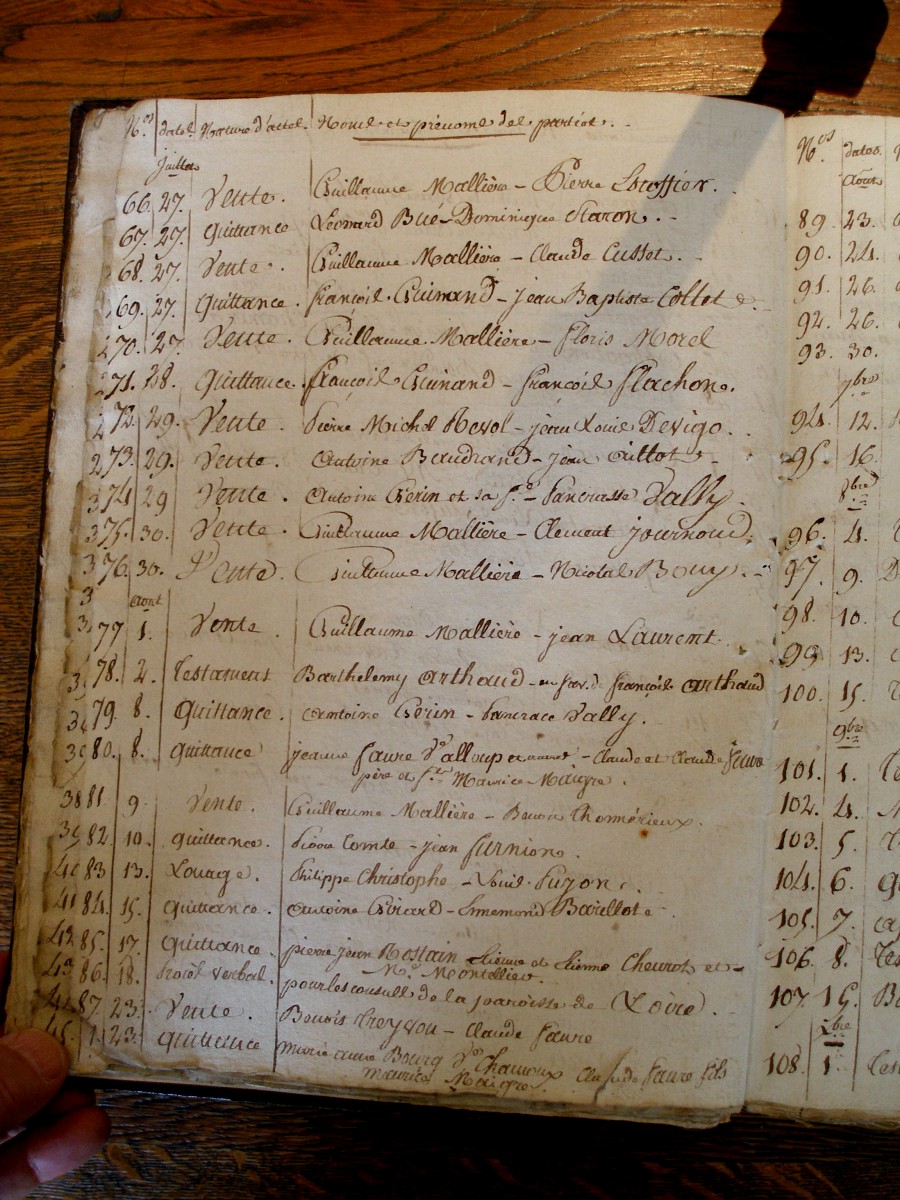 N.os dates Nature d'actes. Noms et prénoms des parties.
juillet
66. 27. Vente. Guillaume Mallière - Pierre Escoffier.
67. 27. Quittance Léonard Bué - Dominique Staron.
68. 27. Vente. Guillaume Mallière - Claude Cusset.
69. 27. Quittance. françois Guinand - jean Baptiste Collet
70. 27. Vente. Guillaume Mallière - floris Morel
71. 28. Quittance. françois Guinand - françois flachon.
72. 29. Vente. Pierre Michel Revol - jean Louis Devigo.
273. 29. Vente. Antoine Beaudrand - jean
374 29 Vente. Antoine Gerin et sa f.e - Pancrasse Vally.
375. 30. Vente. Guillaume Mallière - Clement journoud.
376. 30. Vente. Guillaume Mallière - Nicolas Bouy.
3
Aout
77 1. Vente. Guillaume Mallière - jean Laurent.
78. 2. Testament Barthelemy Arthaud - en fav. de françois Arthaud
79. 8. Quittance. Antoine Gerin - Pancrace Vally.
80. 8. Quittance jeanne faure V.e - Claude et Claude faure
père et f.ls Maurice Maugre.
3881 9. Vente. Guillaume Mallière - Benoit Thomérieux.
3982 10. Quittance. Comte - jean furnion.
4083 13. Louage. Philippe Christophe - Louis Suzon.
4184. 15. Quittance. Antoine Girard - Ennemond Baillot
4285. 17. Quittance. pierre jean Rostain Etienne Cheurot et
N.s Montellier.
4386. 18. Procès verbal. pour les consuls de la paroisse de Loire
4487. 23. Vente. Benoit Freydou - Claude faure
45. 23. Quittance Marie anne Bourg V.e Claude faure fils
Maurice Maugre.
N.os dates
Août
89. 23.
90. 24.
91. 26.
92. 26.
93. 30.
7bre
94. 12.
95. 16.
8bre
96. 4.
97. 9.
98. 10.
99. 13.
100. 15.
9bre
101. 1.
102. 4.
103. 5.
104. 6.
105. 7.
106. 8.
107 15.
Xbre
108. 1.